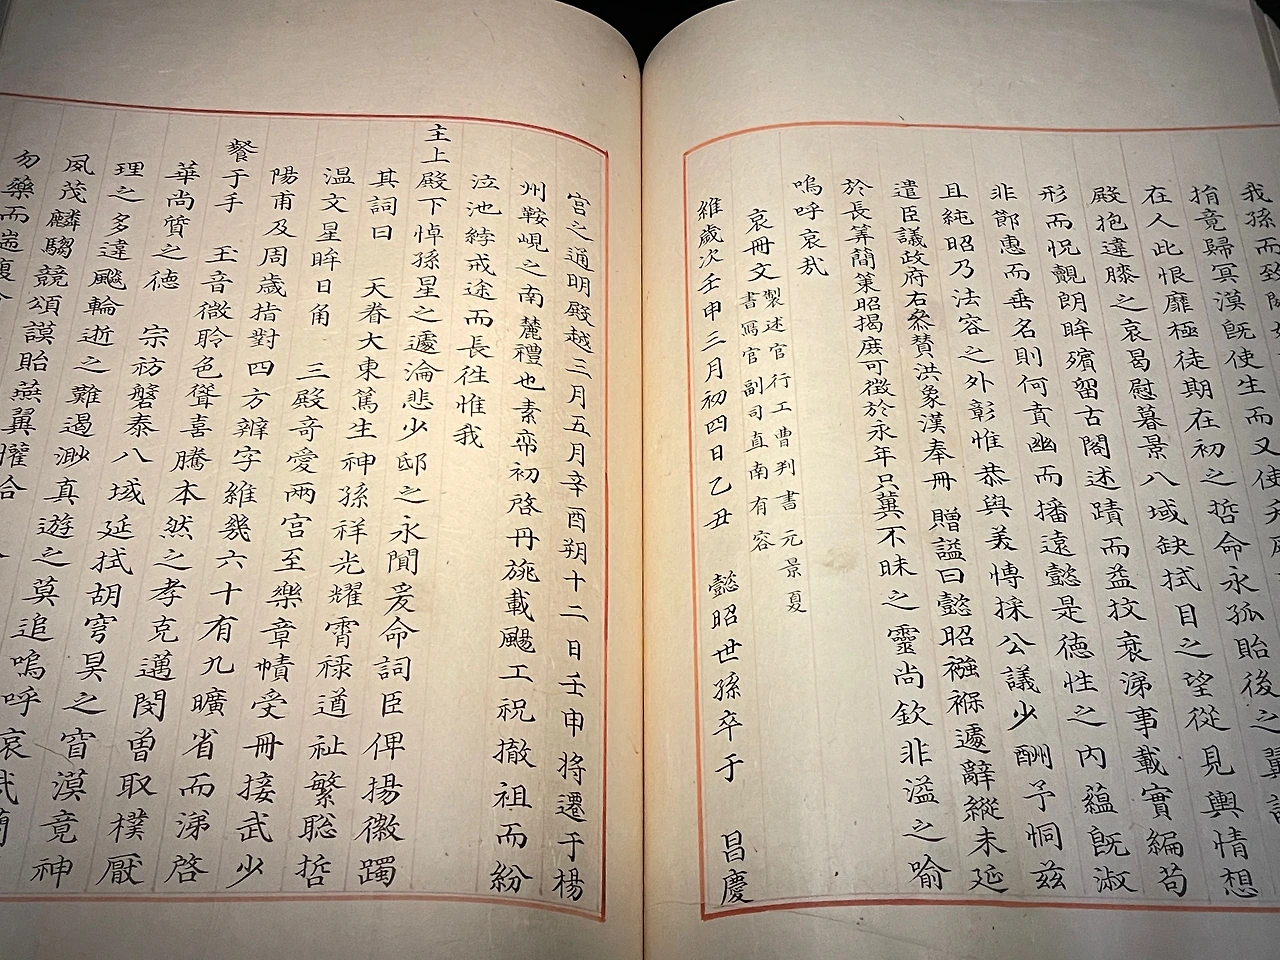 我孫而致
捐竟歸冥漠旣使生而又使
在人此恨靡極徒期在初之哲命永孤貽後之
殿抱違膝之哀曷慰暮景八域缺拭目之望從見輿情想
形而怳覿朗眸殯留古閤述蹟而益抆衰涕事載實編苟
非節惠而垂名則何賁幽而播遠懿是德性之內蘊旣淑
且純昭乃法容之外彰惟恭與美博採公議少酬予恫玆
遣臣議政府右叅贊洪象漢奉冊 贈諡曰懿昭襁褓遽辭縱未延
於長筭簡策昭揭庶可徵於永年只冀不昧之靈尚欽非溢之喻
嗚呼哀哉
哀冊文 製述官行工曹判書元景夏
書寫官副司直南有容
維歲次壬申三月初四日乙丑 懿昭世孫卒于 昌慶
宮之通明殿越三月五月辛酉朔十二日壬申將遷于楊
州鞍峴之南麓禮也素帟初啓丹旐載颺工祝撤祖而紛
泣池綍戒途而長往惟我
主上殿下悼孫星之遽淪悲少邸之永閴爰命詞臣俾揚徽躅
其詞曰 天眷大東篤生神孫祥光耀霄祿道祉繁聰哲
溫文星眸日角 三殿奇愛兩宮至樂章幘受冊接武少
陽甫及周歲指對四方辨字維幾六十有九曠省而涕啓
餐于手 玉音微聆色聳喜騰本然之孝克邁閔曾取樸厭
華尚質之德 宗祊磐泰八域延拭胡穹昊之
理之多違飈輪逝之難遏渺真遊之莫追嗚呼
夙茂麟騶競頌謨貽燕翼
勿藥而